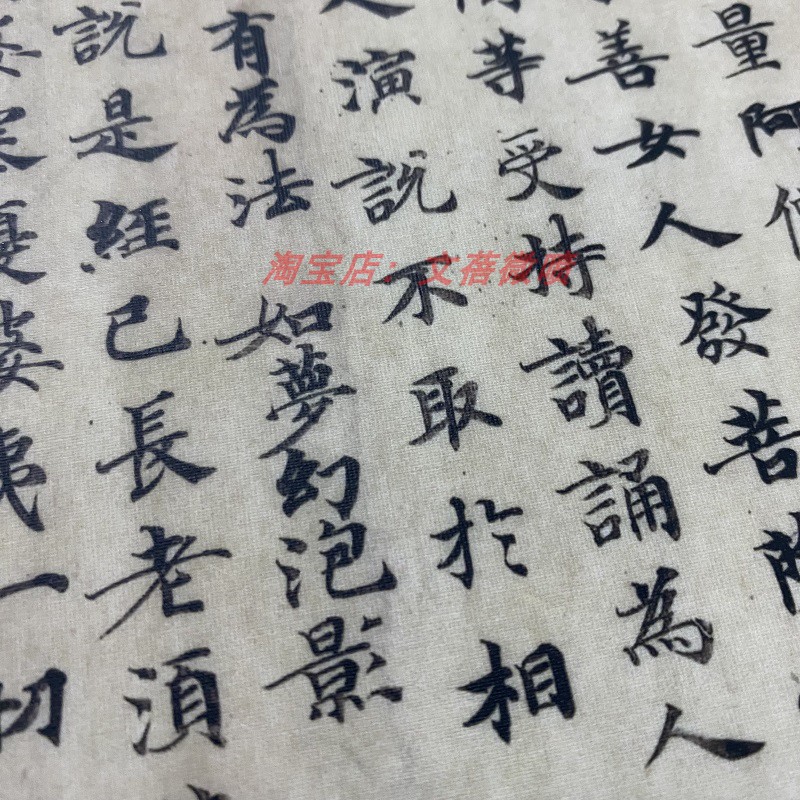 量阿僧
善女人發菩薩
等受持讀誦為人
演說不取於相
有為法 如夢幻泡影
說是經已長老須
婆塞優婆夷一切
淘宝店：